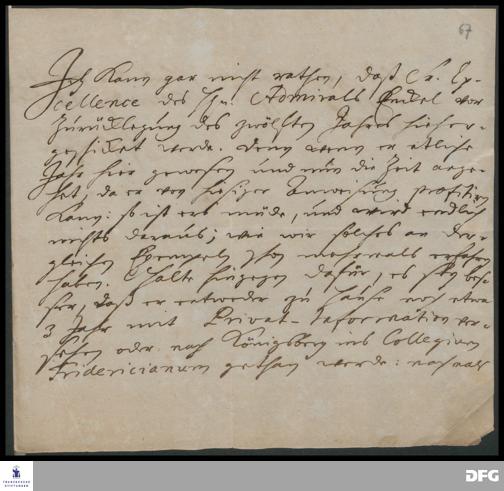 67
Ich kann gar nicht rathen, daß Er. Ex-
cellence des Hrn. Admirals Enckel vor
Zurücklegung des zwölften Jahres hieher-
geschicket werde. Denn wenn er etliche
Jahr hier gewesen und nun die Zeit ange-
het, da er von hiesiger Anweisung profitiren
kann: so ist ers müde, und wird endlich
nichts daraus; wie wir solches an der-
gleichen Exempeln schon mehrmals erfahren
haben. Halte hingegen dafür, es sey bes-
ser, daß er entweder zu Hause noch etwa
3 Jahr mit Privat-Information ver-
sehen oder nach Königsberg ins Collegium
Fridericianum gethan werde: nachmals
FRANCKESCHE
STIFTUNGEN
DFG